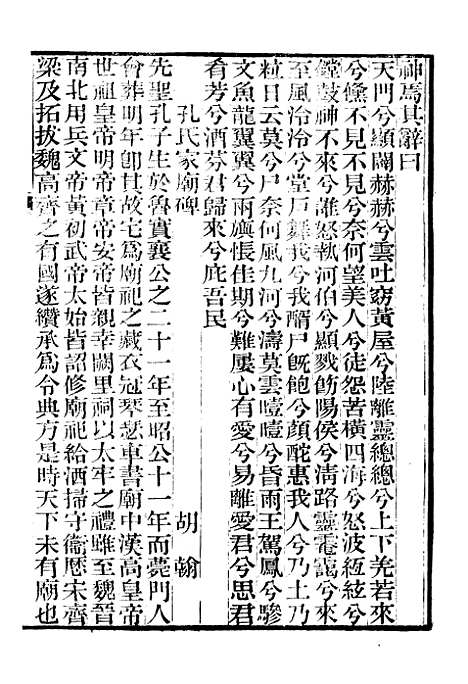 神焉其辭曰
天門兮顯闢赫赫兮雲吐窈黃屋兮陸離靈總總兮上下羌若來
兮儵不見不見兮奈何望美人兮徒怨苦橫四海兮怒波緪絃兮
鏜鼓神不來兮誰怒執河伯兮顯戮飭陽侯兮清路靈電靄兮來
至風泠泠兮堂戶舞我兮我醑尸旣飽兮顏酡惠我人兮乃土乃
粒日云莫兮尸奈何風九河兮濤莫雲曀曀兮昏雨王駕鳳兮驂
文魚龍翼翼兮兩旟悵佳期兮難屢心有愛兮易離愛君兮思君
肴芳兮酒芬君歸來兮庇吾民
孔氏家廟碑 胡翰
先聖孔子生於魯實襄公之二十一年至昭公十一年而薨門人
會葬明年卽其故宅爲廟祀之藏衣冠琴瑟車書廟中漢高皇帝
世祖皇帝明帝章帝安帝皆親幸闕里祠以太牢之禮雖至魏晉
南北用兵文帝黃初武帝太始皆詔修廟祀給洒掃守衞歷宋齊
梁及拓拔魏高齊之有國遂纘承爲令典方是時天下未有廟也